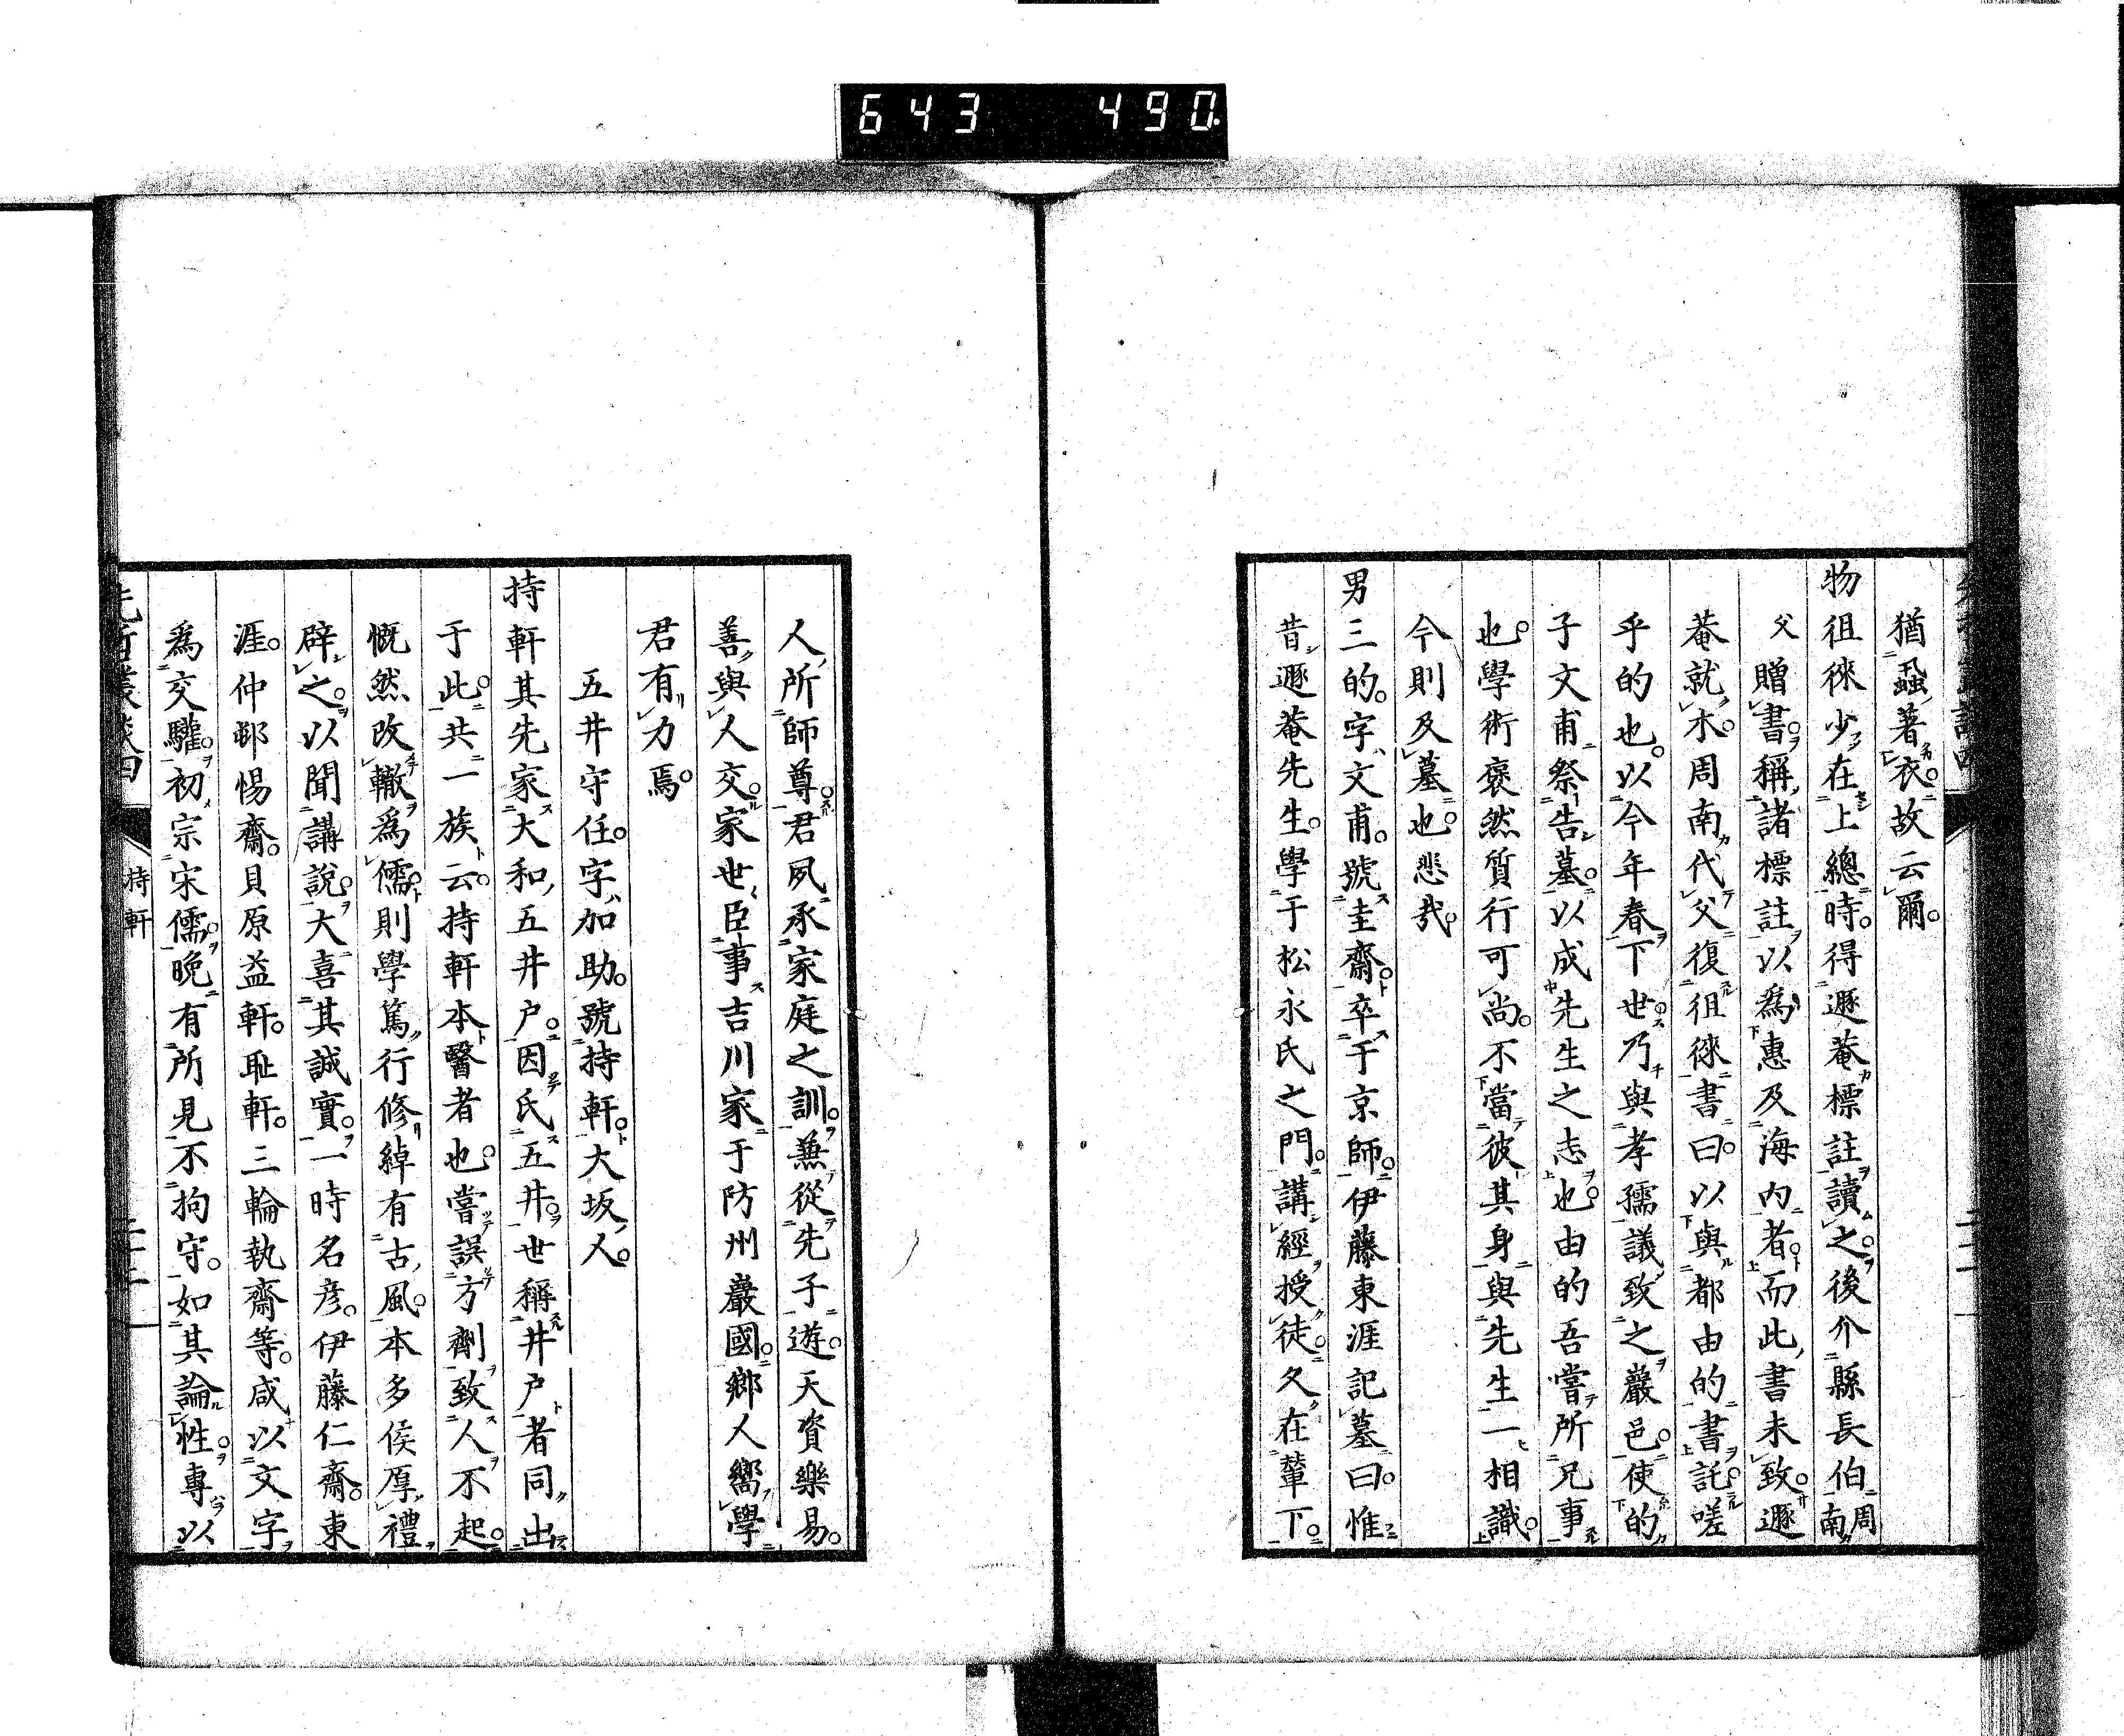 643 490
猶蝨著衣。故云爾。
物徂徠少在上總時。得遯菴標註讀之。後介縣長伯周南
父贈書。稱諸標註以爲惠及海內者。而此書未致。遯
菴就木。周南代父復徂徠書曰。以與都由的書託嗟
乎的也。以今年春下世。乃與孝孺議致之巖邑。使的
子文甫祭告墓。以成先生之志也。由的吾嘗所兄事
也。學術褒然質行可尚。不當彼其身與先生一相識。
今則及墓也。悲哉。
男三的。字文甫。號圭齋。卒于京師。伊藤東涯記墓曰。惟
昔遯菴先生。學于松永氏之門。講經授徒。久在輦下。
人所師尊。君夙承家庭之訓。兼從先子遊。天資樂易。
善與人交。家世臣事吉川家于防州巖國。鄉人嚮學
君有力焉。
五井守任。字加助。號持軒。大坂人。
持軒其先家大和五井戶。因氏五井。世稱井戶者同出
于此。共一族云。持軒本醫者也。嘗誤方劑致人不起。
慨然改轍爲儒。則學篤行修綽有古風。本多侯厚禮
辟之。以聞講說。大喜其誠實。一時名彥。伊藤仁齋。東
涯。仲邨惕齋。貝原益軒。恥軒。三輪執齋等。咸以文字
爲交驩。初宗宋儒。晚有所見不拘守。如其論性。專以
持軒